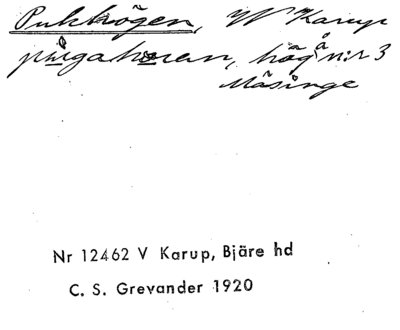 Pukhögen, V Karup
hög å n:r 3
Måsinge
Nr 12462 V Karup, Bjäre hd
C. S. Grevander 1920